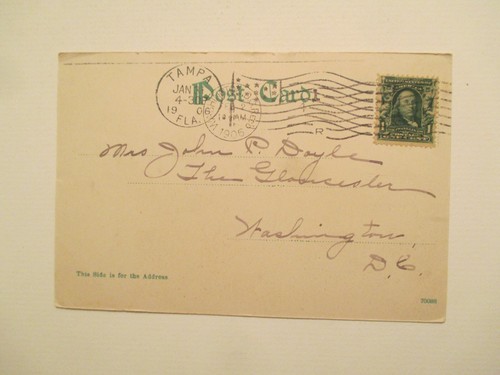 TAMPA
JAN
4-3
1906
FLA.
Post Card
1906
R
Mrs John P. Doyle
The Gloucester
Washington,
D.C.
This Side is for the Address